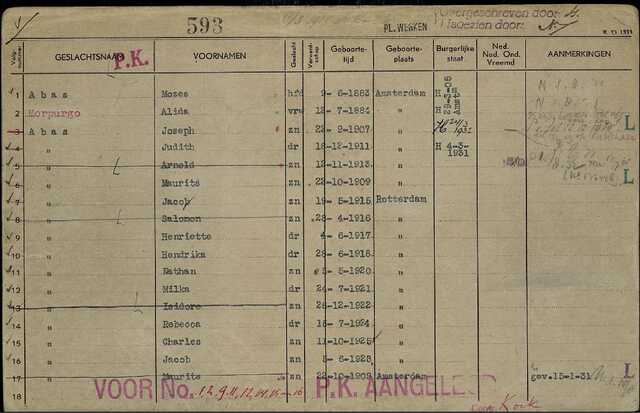 593
PL. WERKEN
Overgeschreven door:
Nagezien door:
GESLACHTSNAAM P.K. VOORNAMEN Geslacht Geboorte-tijd Geboorte-plaats Burgerlijke staat Ned. Ned. Ond. Vreemd AANMERKINGEN
1 Abas Mozes hfd 9- 6-1883 Amsterdam H 29-3-05 Amst
2 Morpurgo Alida vrw 12- 7-1884 " H
3 Abas Joseph zn 23- 2-1907 " L
4 " Judith dr 18-12-1911 " H 4-3-1931
5 " Arnold zn 12-11-1913 "
6 " Maurits zn 22-10-1909 " L
7 " Jacob zn 19- 5-1915 Rotterdam
8 " Salomon zn 28- 4-1916 " L
9 " Henriette dr 4- 6-1917 "
10 " Hendrika dr 28- 6-1918 "
11 " Nathan zn 5- 5-1920 "
12 " Milka dr 24- 7-1921 "
13 " Isidore zn 28-12-1922 "
14 " Rebecca dr 16- 7-1924 "
15 " Charles zn 11-10-1925 "
16 " Jacob zn 5- 6-1928 "
17 " Maurits zn 22-10-1909 Amsterdam gev.15-1-31
18 VOOR No. P.K. AANGELEGD